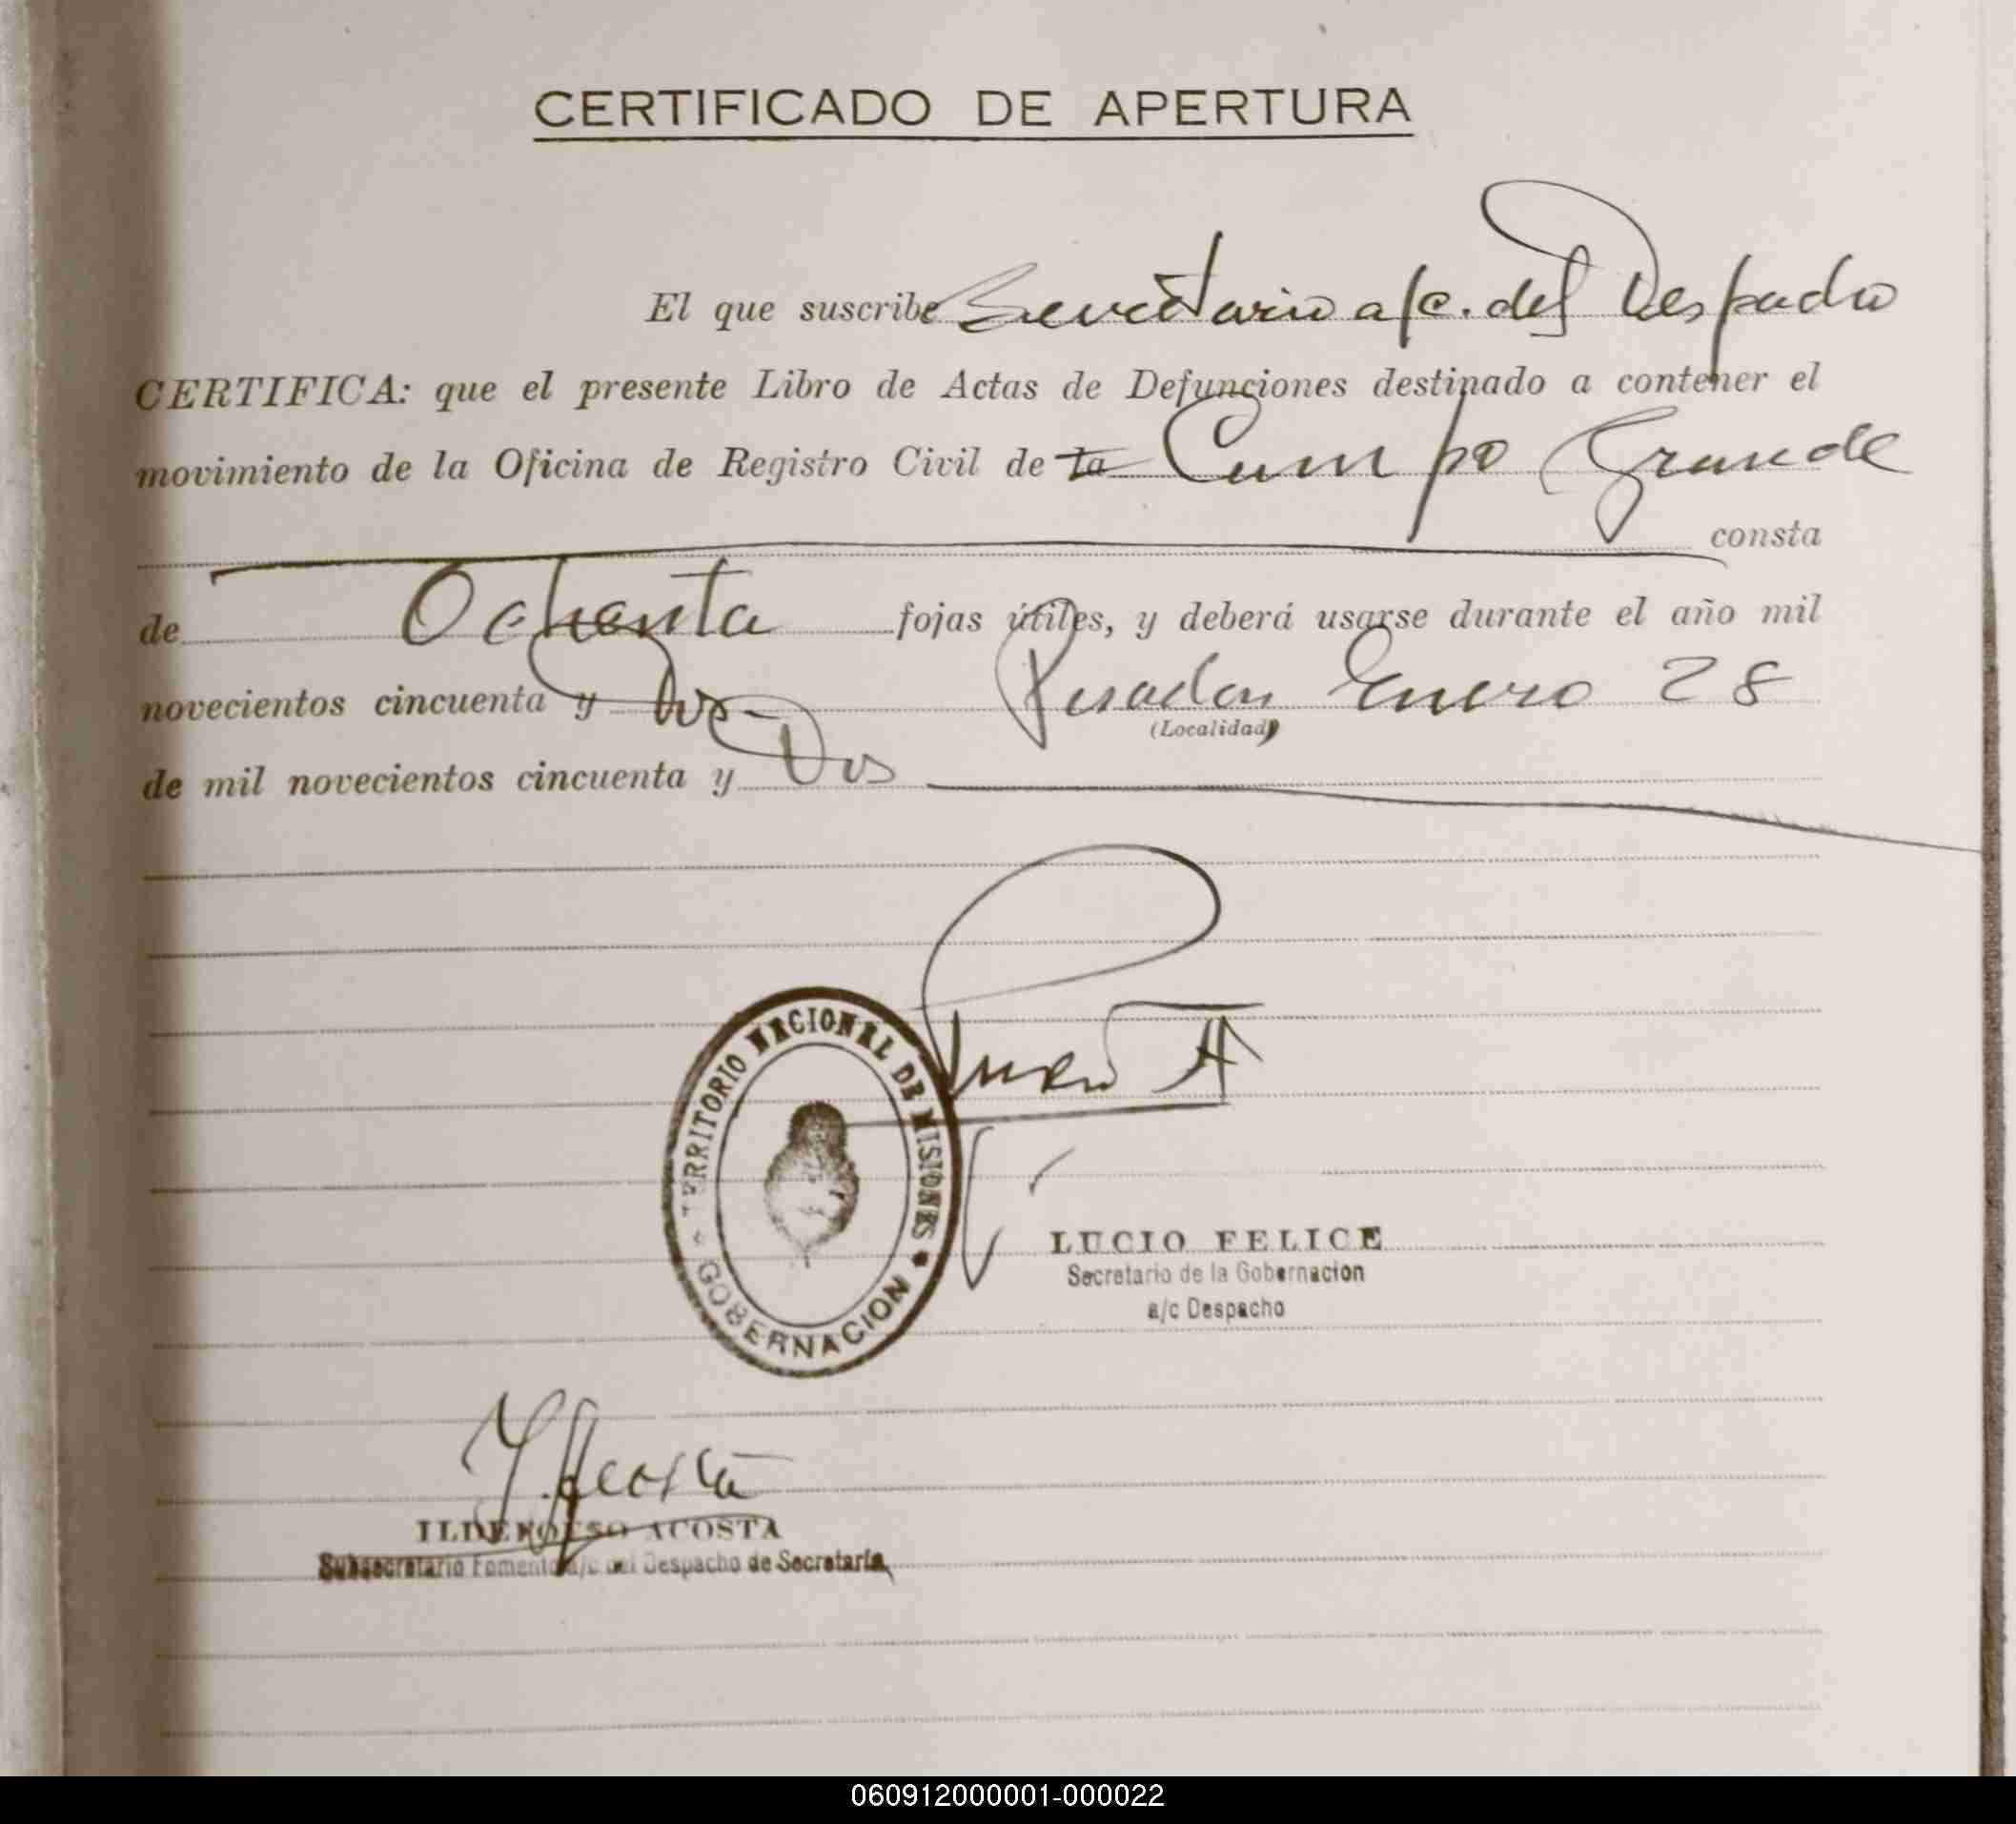 CERTIFICADO DE APERTURA
El que suscribe Secretario a/c. del Despacho
CERTIFICA: que el presente Libro de Actas de Defunciones destinado a contener el
movimiento de la Oficina de Registro Civil de la Campo Grande
consta
de Ochenta fojas útiles, y deberá usarse durante el año mil
novecientos cincuenta y Dos Posadas Enero 28
(Localidad)
de mil novecientos cincuenta y Dos
TERRITORIO NACIONAL DE MISIONES
GOBERNACION
LUCIO FELICE
Secretario de la Gobernacion
a/c Despacho
I. Acosta
ILDEFONSO ACOSTA
Subsecretario Fomento a/c del Despacho de Secretaría
060912000001-000022